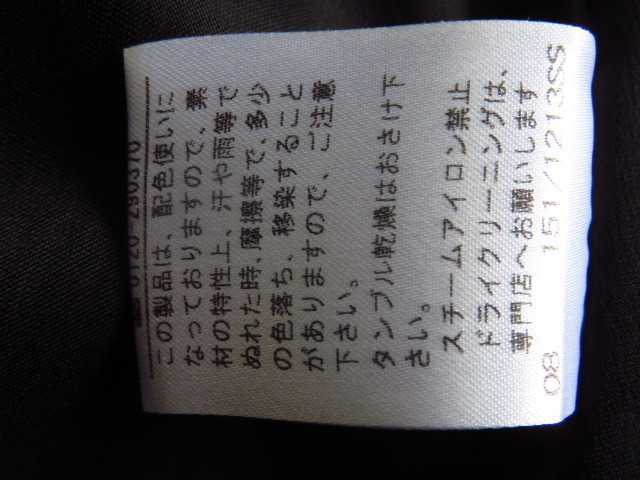 0120-290370
この製品は、配色使いに
なっておりますので、素
材の特性上、汗や雨等で
ぬれた時、摩擦等で、多少
の色落ち、移染すること
がありますので、ご注意
下さい。
タンブル乾燥はおさけ下
さい。
スチームアイロン禁止
ドライクリーニングは、
専門店へお願いします
08 151/1213SS